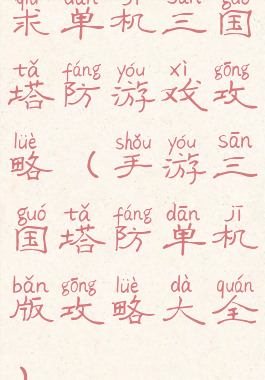 qiú dān jī sān guó
求单机三国
tǎ fáng yóu xì gōng
塔防游戏攻
lüè shǒu yóu sān
略（手游三
guó tǎ fáng dān jī
国塔防单机
bǎn gōng lüè dà quán
版攻略大全
）